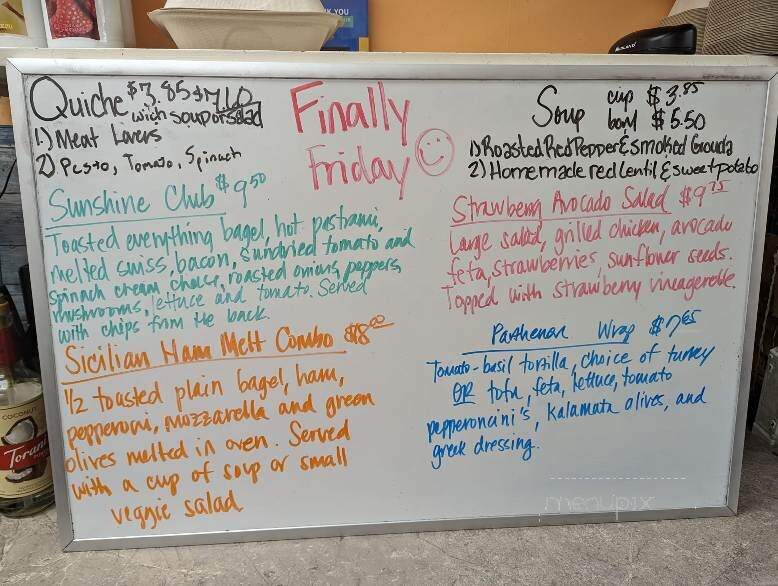 YOU
Quiche $3.85 $7.10
with soup or salad
1.) Meat Lovers
2) Pesto, Tomato, Spinach
Finally
Friday
Soup cup $3.85
bowl $5.50
1) Roasted Red Pepper & smoked Gouda
2) Homemade red lentil & sweet potato
Sunshine Club $9.50
Toasted everything bagel, hot pastrami,
melted swiss, bacon, sundried tomato and
spinach cream cheese, roasted onions, peppers
mushrooms, lettuce and tomato. Served
with chips from the back.
Strawberry Avocado Salad $9.75
Large salad, grilled chicken, avocado
feta, strawberries, sunflower seeds.
Topped with strawberry vineagerette.
Sicilian Ham Melt Combo $8.00
1/2 toasted plain bagel, ham,
pepperoni, mozzarella and green
olives melted in oven. Served
with a cup of soup or small
veggie salad
Parthenon Wrap $7.65
Tomato-basil tortilla, choice of turkey
OR tofu, feta, lettuce, tomato
pepperoncini's, kalamata olives, and
greek dressing.
COCONUT
Torani
menupix